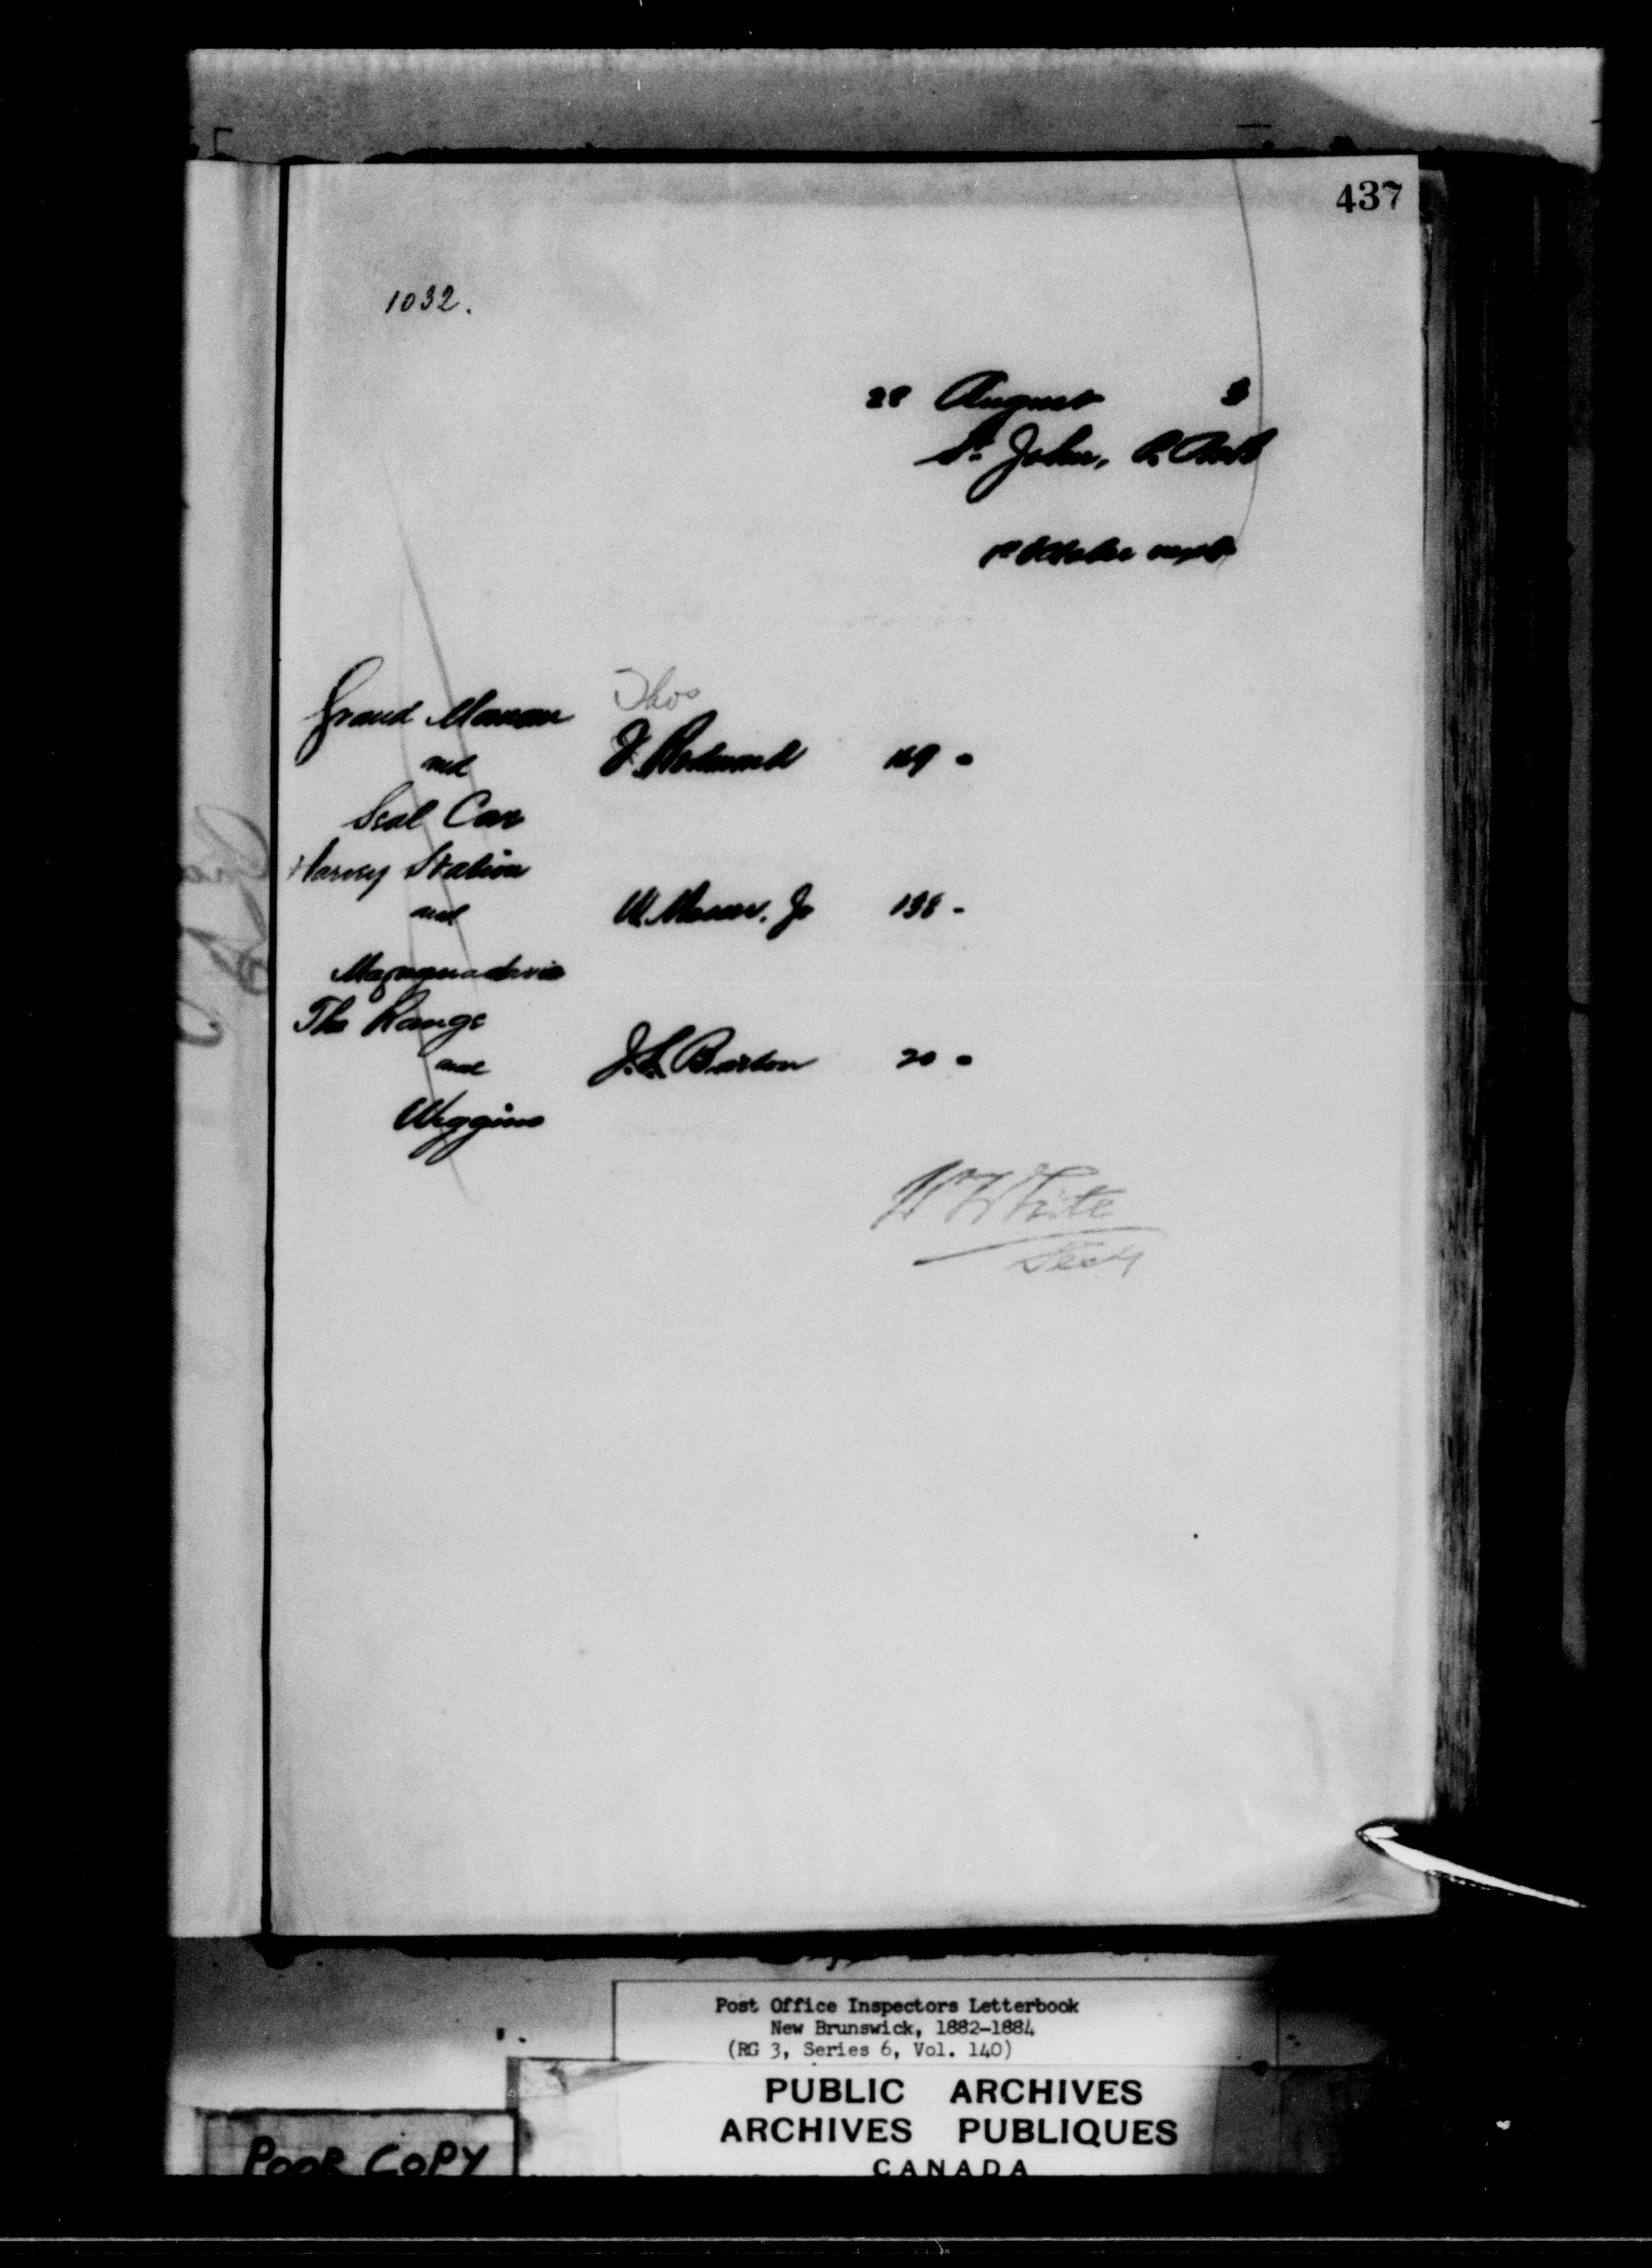 437
1032.
28 August 3
St. John, N.B.
1st October next
Thos
Grand Manan
and J. Redmond 169 -
Seal Cove
Harvey Station
and W. Messer, Jr 138 -
Magaguadavic
The Range
and J. S. Barton 20 -
Wiggins
W White
Secy
Post Office Inspectors Letterbook
New Brunswick, 1882-1884
(RG 3, Series 6, Vol. 140)
PUBLIC ARCHIVES
ARCHIVES PUBLIQUES
CANADA
POOR COPY